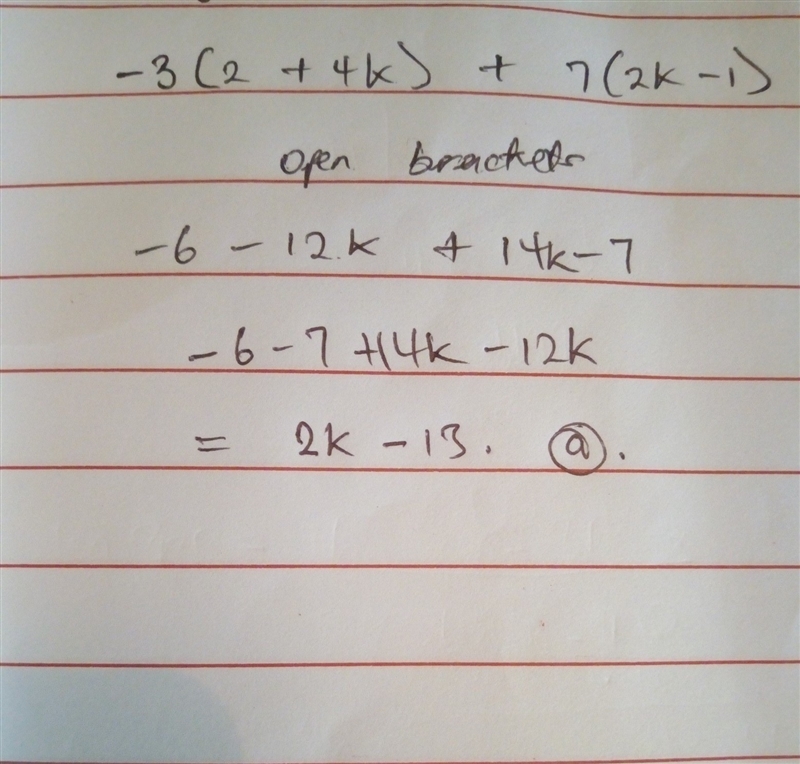 -3(2 + 4k) + 7(2k-1)
open brackets
-6 - 12k + 14k-7
-6-7+14k-12k
= 2k-13. ⓐ.